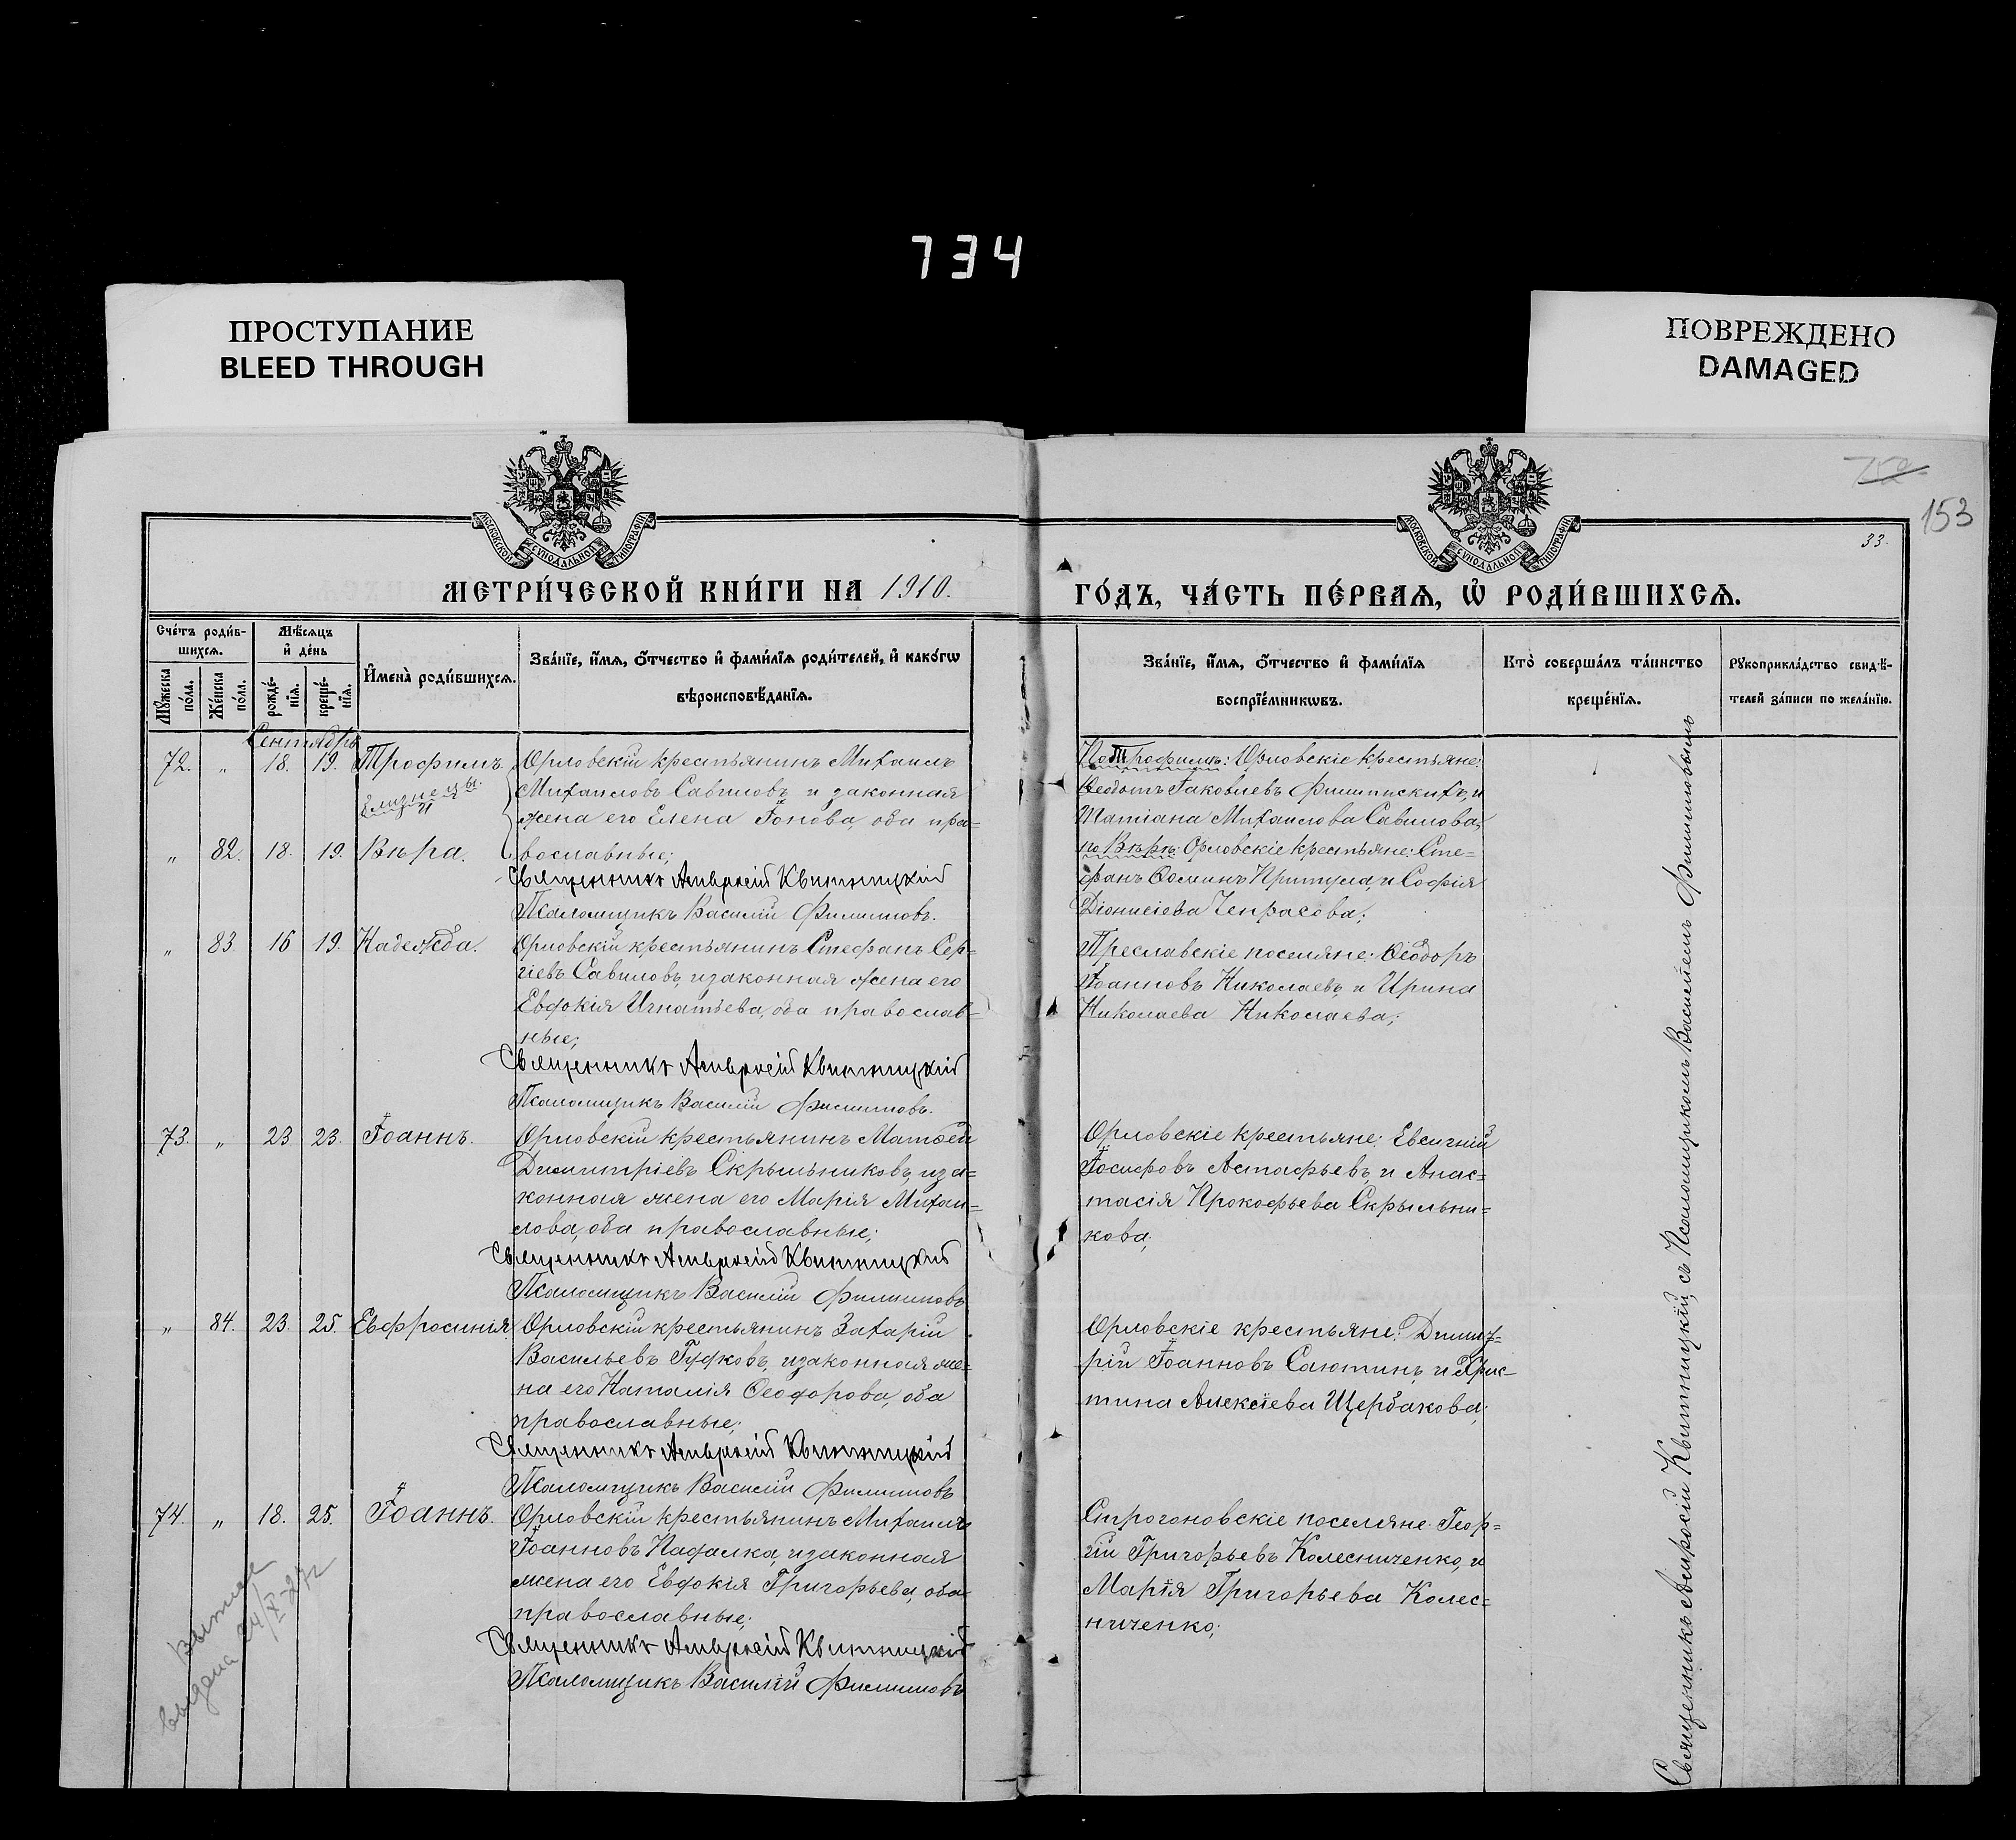 734
ПРОСТУПАНИЕ
BLEED THROUGH
ПОВРЕЖДЕНО
DAMAGED
МОСКОВСКОЙ СѴНОДАЛЬНОЙ ТИПОГРАФІИ
МОСКОВСКОЙ СѴНОДАЛЬНОЙ ТИПОГРАФІИ
153
33.
МЕТРИ́ЧЕСКОЙ КНИ́ГИ НА 1910.
ГО́ДЪ, ЧА́СТЬ ПЕ́РВАЯ, Ѡ҆ РОДИ́ВШИХСЯ.
Сче́тъ роди́в-
шихся.
Мꙋ́жеска по́ла.
Же́нска по́ла.
Мѣ́сяцъ
и҆ де́нь
рожде́-
нїя.
креще́-
нїя.
И҆мена̀ роди́вшихся.
Зва́нїе, и҆́мя, ѻ҆́тчество и҆ фами́лїя роди́телей, и҆ како́гѡ
вѣроисповѣ́данїя.
Зва́нїе, и҆́мя, ѻ҆́тчество и҆ фами́лїя
воспрїе́мникѡвъ.
Кто̀ соверша́лъ та́инство
креще́нїя.
Рꙋкоприкла́дство свидѣ́-
телей за́писи по жела́нїю.
Сентябрь
72. „ 18. 19. Трофимъ
близнецы.
Орловскій крестьянинъ Михаилъ
Михаиловъ Савиловъ и законная
жена его Елена Іонова, оба пра=
„ 82. 18. 19. Вѣра.
вославные;
Священникъ Амвросій Квитницкій
Псаломщикъ Василій Филипповъ.
По Трофимѣ: Орловскіе крестьяне:
Ѳеодотъ Іаковлевъ Филипскихъ, и
Татіана Михаилова Савилова;
по Вѣрѣ: Орловскіе крестьяне: Сте=
фанъ Ѳоминъ Притула, и Софія
Діонисіева Чепрасова;
„ 83. 16 19. Надежда.
Орловскій крестьянинъ Стефанъ Сер=
гіевъ Савиловъ, и законная жена его
Евдокія Игнатьева, оба православ=
ные;
Священникъ Амвросій Квитницкій
Псаломщикъ Василій Филипповъ.
Преславскіе поселяне: Ѳеодоръ
Іоанновъ Николаевъ, и Ирина
Николаева Николаева;
73. „ 23 23. Іоаннъ.
Орловскій крестьянинъ Матѳей
Димитріевъ Скрыльниковъ, и за=
конная жена его Марія Михаи=
лова, оба православные;
Священникъ Амвросій Квитницкій
Псаломщикъ Василій Филипповъ
Орловскіе крестьяне: Евсигній
Іосифовъ Астафьевъ, и Анас=
тасія Прокофьева Скрыльни=
кова;
„ 84. 23. 25. Евфросинія
Орловскій крестьянинъ Захарій
Васильевъ Гудковъ, и законная же=
на его Наталія Ѳеодорова, оба
православные;
Священникъ Амвросій Квитницкій
Псаломщикъ Василій Филипповъ
Орловскіе крестьяне: Димит=
рій Іоанновъ Саютинъ, и Хрис=
тина Алексіева Щербакова;
74. „ 18. 25. Іоаннъ.
Орловскій крестьянинъ Михаилъ
Іоанновъ Падалка, и законная
жена его Евдокія Григорьева, оба
православные;
Священникъ Амвросій Квитницкій
Псаломщикъ Василій Филипповъ
Строгоновскіе поселяне: Геор=
гій Григорьевъ Колесниченко, и
Марія Григорьева Колес=
ниченко;
выдана 24/X-27г
Священникъ Амвросій Квитницкій, съ Псаломщикомъ Василіемъ Филипповымъ